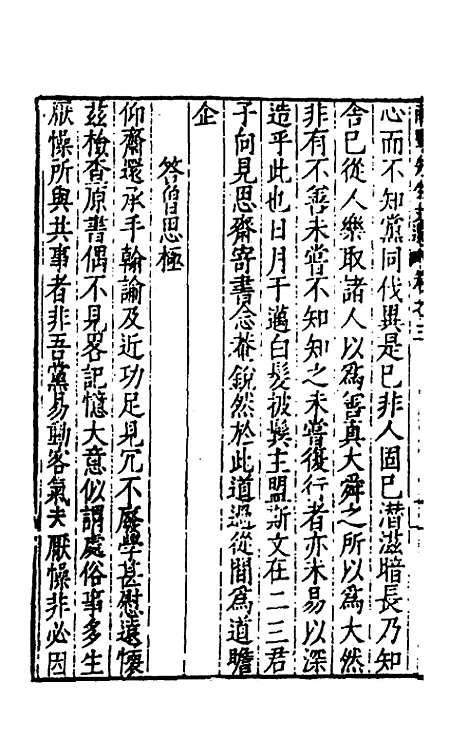 心而不知黨同伐異是己非人固已潛滋暗長乃知
舍己從人樂取諸人以為善真大舜之所以為大然
非有不善未嘗不知知之未嘗復行者亦未易以深
造乎此也日月于邁白髮被鬢主盟斯文在二三君
子向見思齋寄書念菴銳然於此道過從間為道瞻
企
答曾思極
仰齋還承手翰諭及近功足見冗不廢學甚慰遠懷
茲檢查原書偶不見畧記憶大意似謂處俗事多生
厭懆所與共事者非吾黨易動客氣夫厭懆非必因